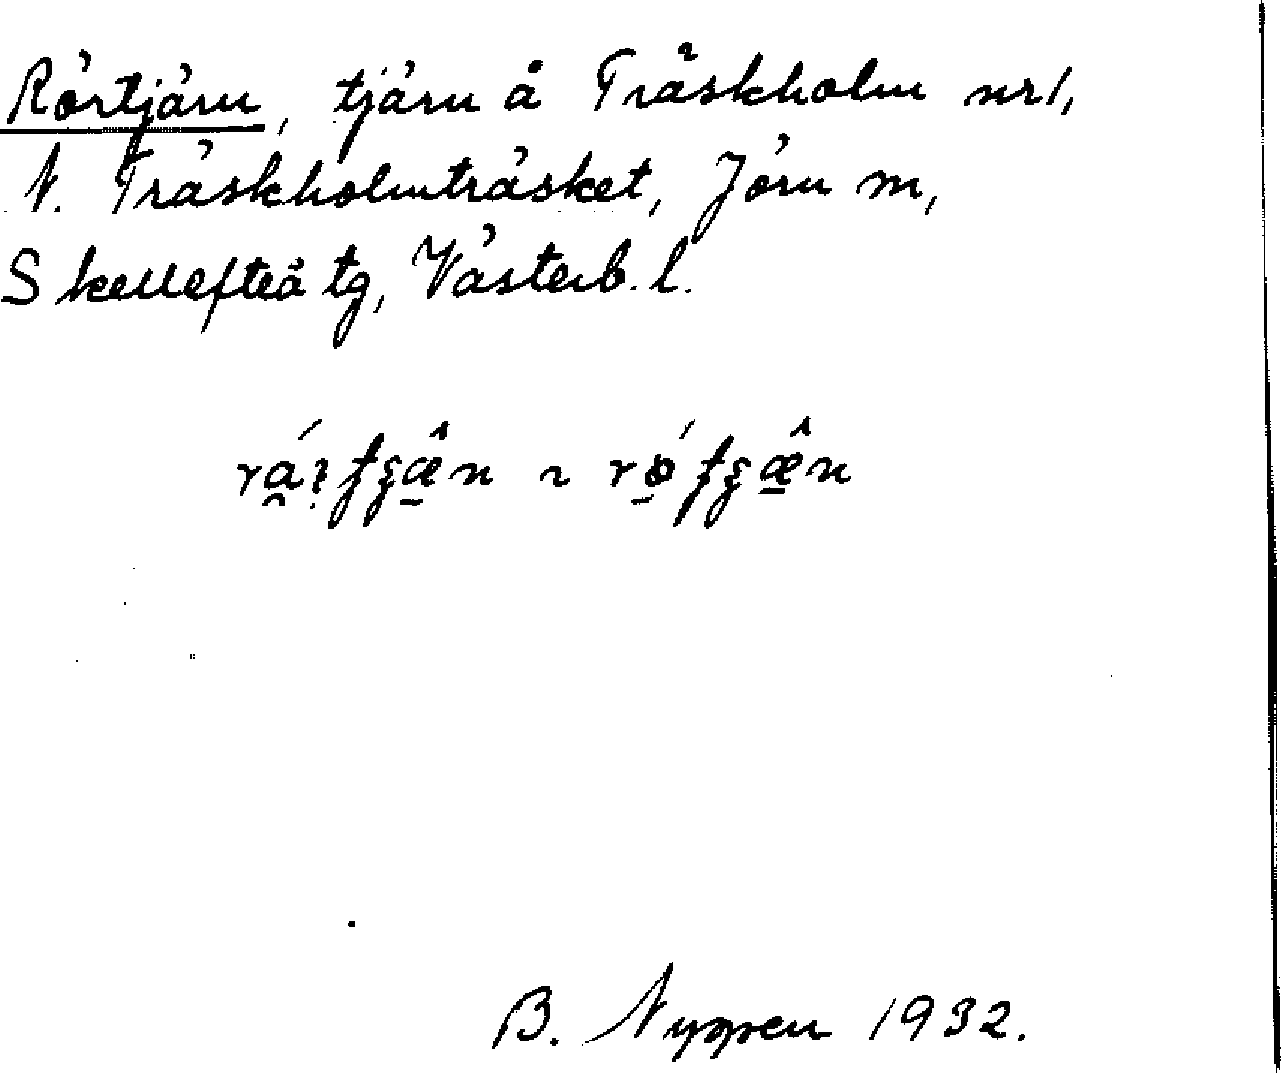 Rörtjärn, tjärn å Träskholm nr 1,
N. Träskholmträsket, Jörn sn,
Skellefteå tg, Västerb. l.
B. Nyppen 1932.